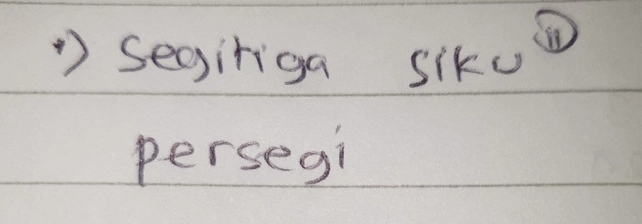 *) segitiga siku ⑪
persegi